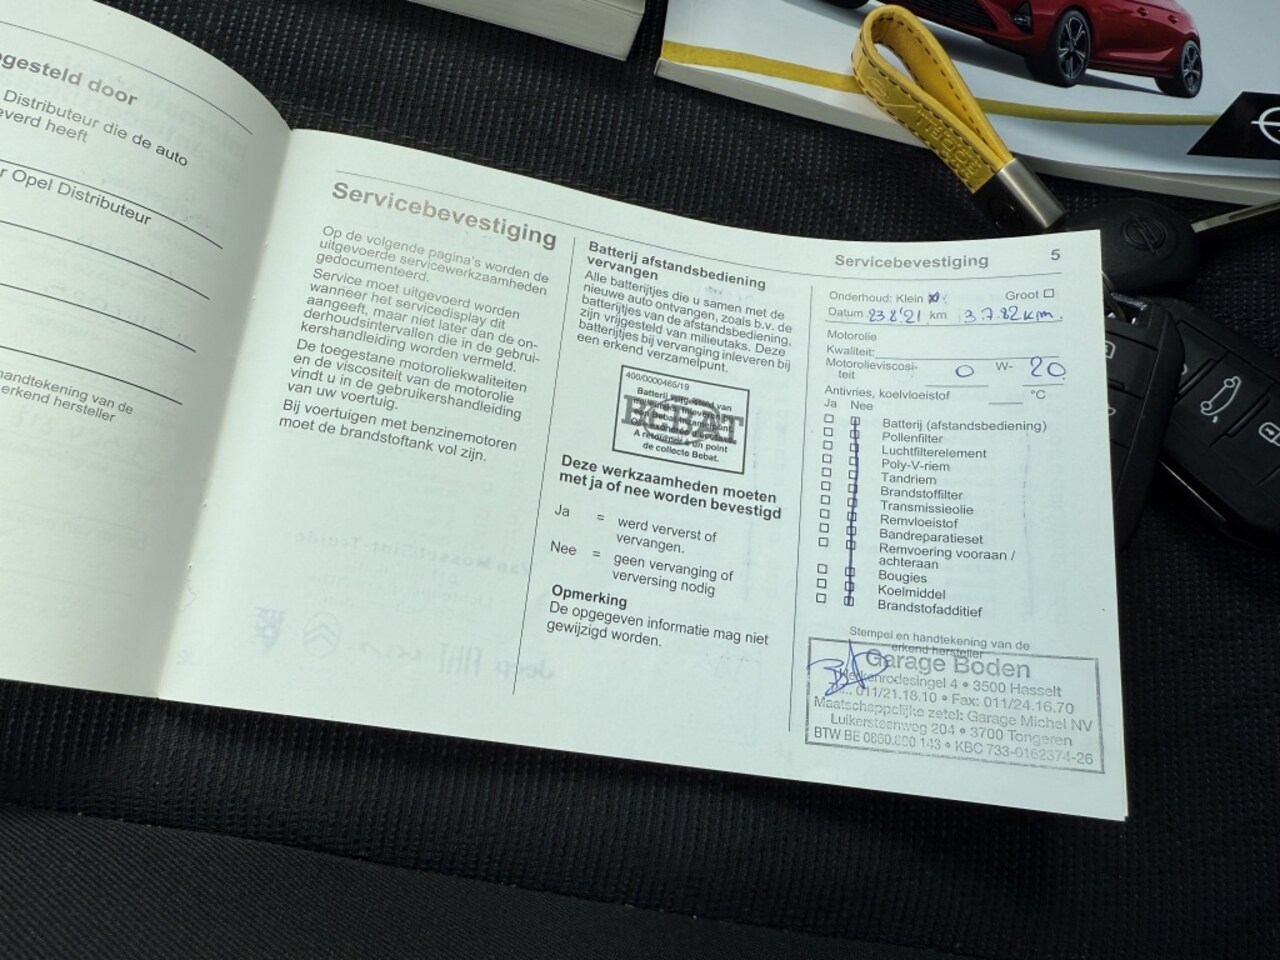 gesteld door
Distributeur die de auto
everd heeft
r Opel Distributeur
handtekening van de
erkend hersteller
Servicebevestiging
Op de volgende pagina's worden de
uitgevoerde servicewerkzaamheden
gedocumenteerd.
Service moet uitgevoerd worden
wanneer het servicedisplay dit
aangeeft, maar niet later dan de on-
derhoudsintervallen die in de gebrui-
kershandleiding worden vermeld.
De toegestane motoroliekwaliteiten
en de viscositeit van de motorolie
vindt u in de gebruikershandleiding
van uw voertuig.
Bij voertuigen met benzinemotoren
moet de brandstoftank vol zijn.
Batterij afstandsbediening
vervangen
Alle batterijtjes die u samen met de
nieuwe auto ontvangen, zoals b.v. de
batterijtjes van de afstandsbediening,
zijn vrijgesteld van milieutaks. Deze
batterijtjes bij vervanging inleveren bij
een erkend verzamelpunt.
400/0000465/19
BEBAT
A retourner à un point
de collecte Bebat.
Deze werkzaamheden moeten
met ja of nee worden bevestigd
Ja = werd ververst of
vervangen.
Nee = geen vervanging of
verversing nodig
Opmerking
De opgegeven informatie mag niet
gewijzigd worden.
Servicebevestiging 5
Onderhoud: Klein Groot
Datum 23.8'21 km 37.82 km.
Motorolie
Kwaliteit:
Motorolieviscosi-
teit 0 W- 20
Antivries, koelvloeistof °C
Ja Nee
Batterij (afstandsbediening)
Pollenfilter
Luchtfilterelement
Poly-V-riem
Tandriem
Brandstoffilter
Transmissieolie
Remvloeistof
Bandreparatieset
Remvoering vooraan /
achteraan
Bougies
Koelmiddel
Brandstofadditief
Stempel en handtekening van de
erkend hersteller
Garage Boden
Herkenrodesingel 4 • 3500 Hasselt
011/21.18.10 • Fax: 011/24.16.70
Maatschappelijke zetel: Garage Michel NV
Luikersteenweg 204 • 3700 Tongeren
BTW BE 0860.690.143 • KBC 733-0162374-26